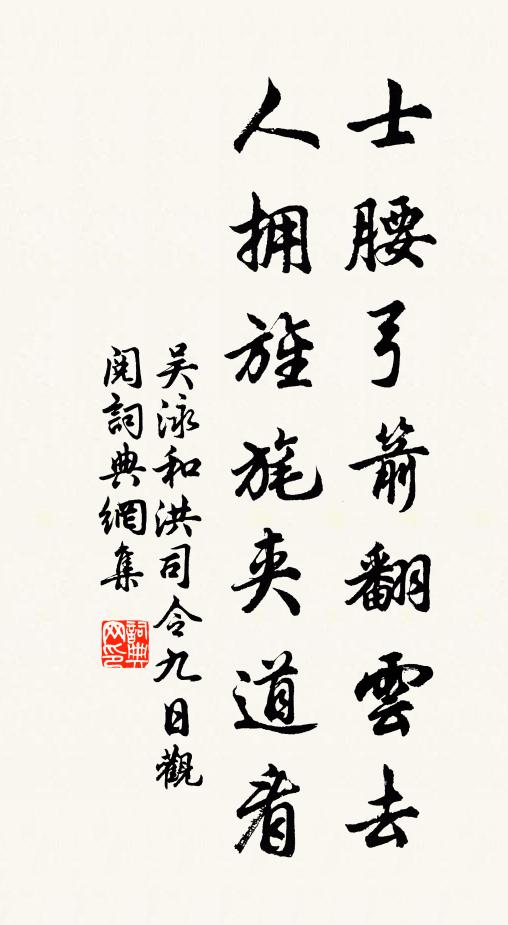 士腰弓箭翻雲去
人拥旌旄夾道看
吴泳和洪司令九日觀
閱詞典網集
詞典
网印